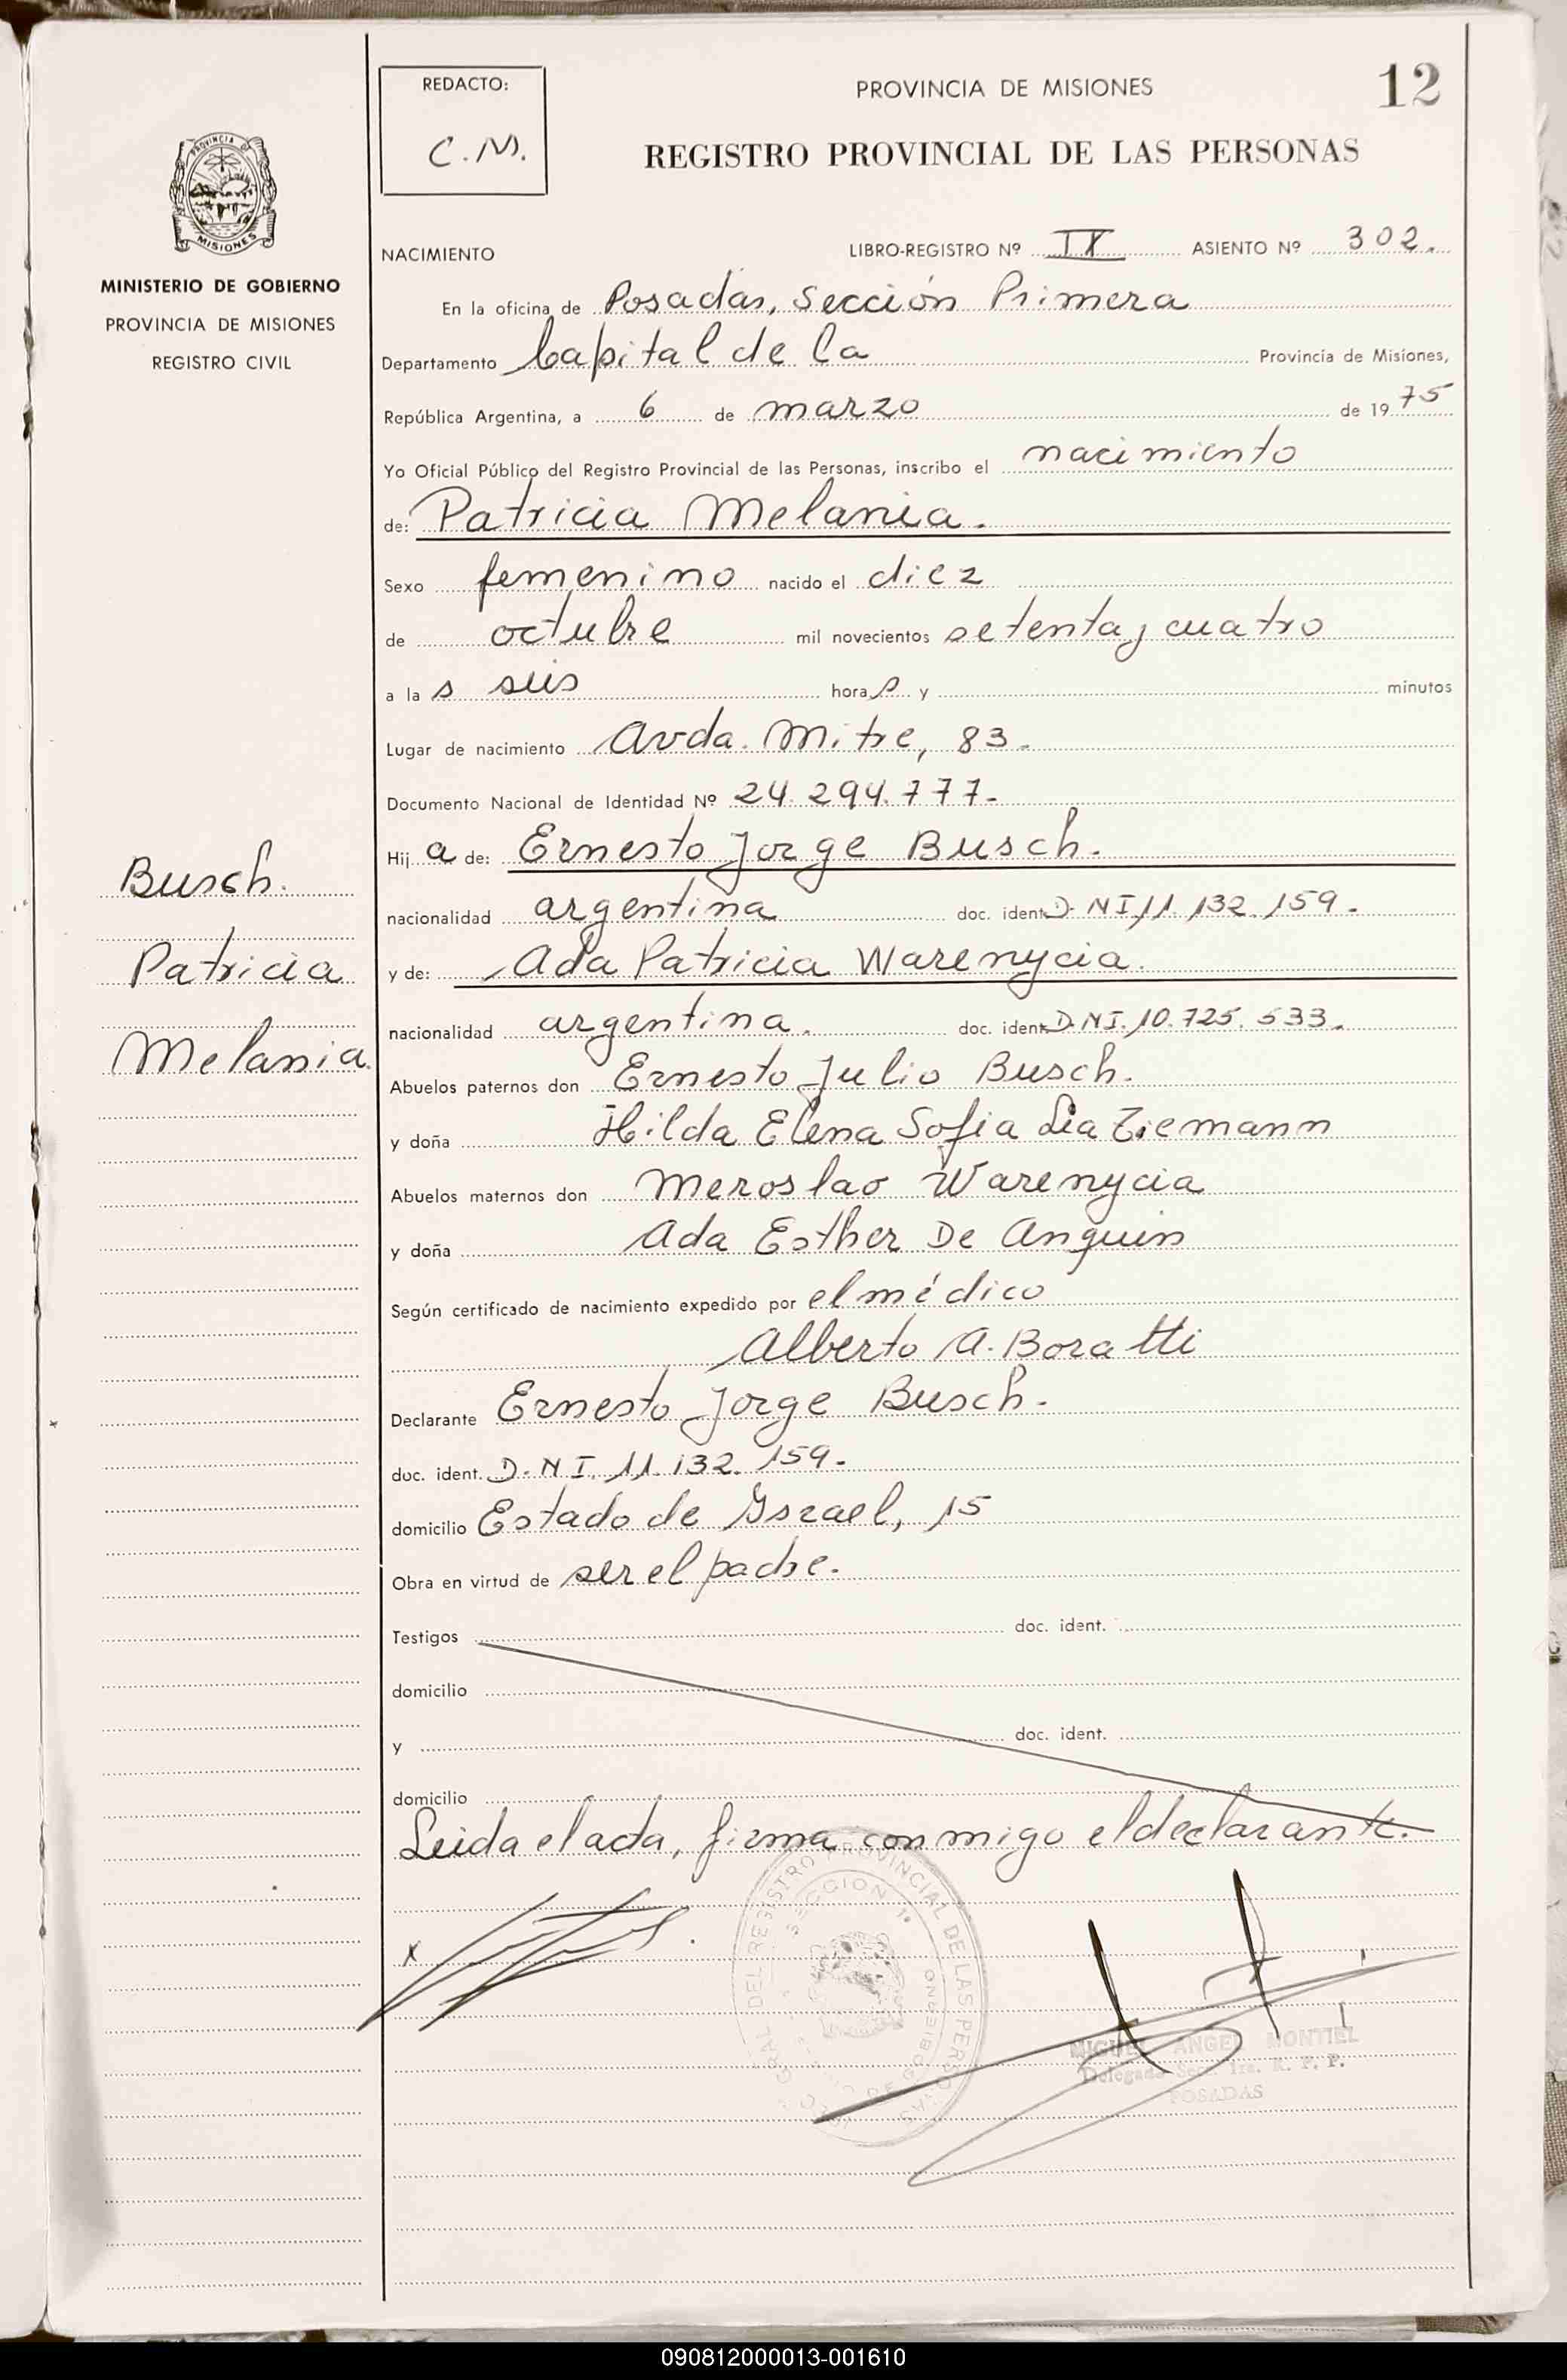 REDACTO:
C.M.
PROVINCIA DE MISIONES
12
REGISTRO PROVINCIAL DE LAS PERSONAS
PROVINCIA DE
MISIONES
MINISTERIO DE GOBIERNO
PROVINCIA DE MISIONES
REGISTRO CIVIL
NACIMIENTO LIBRO-REGISTRO Nº II ASIENTO Nº 302.
En la oficina de Posadas, Sección Primera
Departamento Capital de la Provincia de Misiones,
República Argentina, a 6 de marzo de 1975
Yo Oficial Público del Registro Provincial de las Personas, inscribo el nacimiento
de: Patricia Melania.
Sexo femenino nacido el diez
de octubre mil novecientos setenta y cuatro
a las seis horas y minutos
Lugar de nacimiento Avda. Mitre, 83.
Documento Nacional de Identidad Nº 24.294.777-
Hija de: Ernesto Jorge Busch.
nacionalidad argentina doc. ident. D.NI. 11.132.159.
y de: Ada Patricia Warenycia.
nacionalidad argentina. doc. ident. D.NI. 10.725.533.
Busch.
Patricia
Melania.
Abuelos paternos don Ernesto Julio Busch.
y doña Hilda Elena Sofia Lia Ziemann
Abuelos maternos don Meroslao Warenycia
y doña Ada Esther De Anguin
Según certificado de nacimiento expedido por el médico
Alberto A. Boratti
Declarante Ernesto Jorge Busch.
doc. ident. D.N I. 11.132.159.
domicilio Estado de Israel, 15
Obra en virtud de ser el padre.
Testigos doc. ident.
domicilio
y doc. ident.
domicilio
Leida el acta, firma conmigo el declarante.
x
REGISTRO PROVINCIAL DE LAS PERSONAS
SECCION 1ª
DE GOBIERNO
MIGUEL ANGEL MONTIEL
Delegado Secc. 1ra. R. P. P.
POSADAS
090812000013-001610